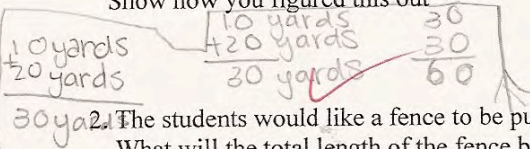 Show how you figured this out
10 yards
+20 yards
30 yards
10 yards
+20 yards
30 yards
30
30
60
2. The students would like a fence to be pu
What will the total length of the fence b